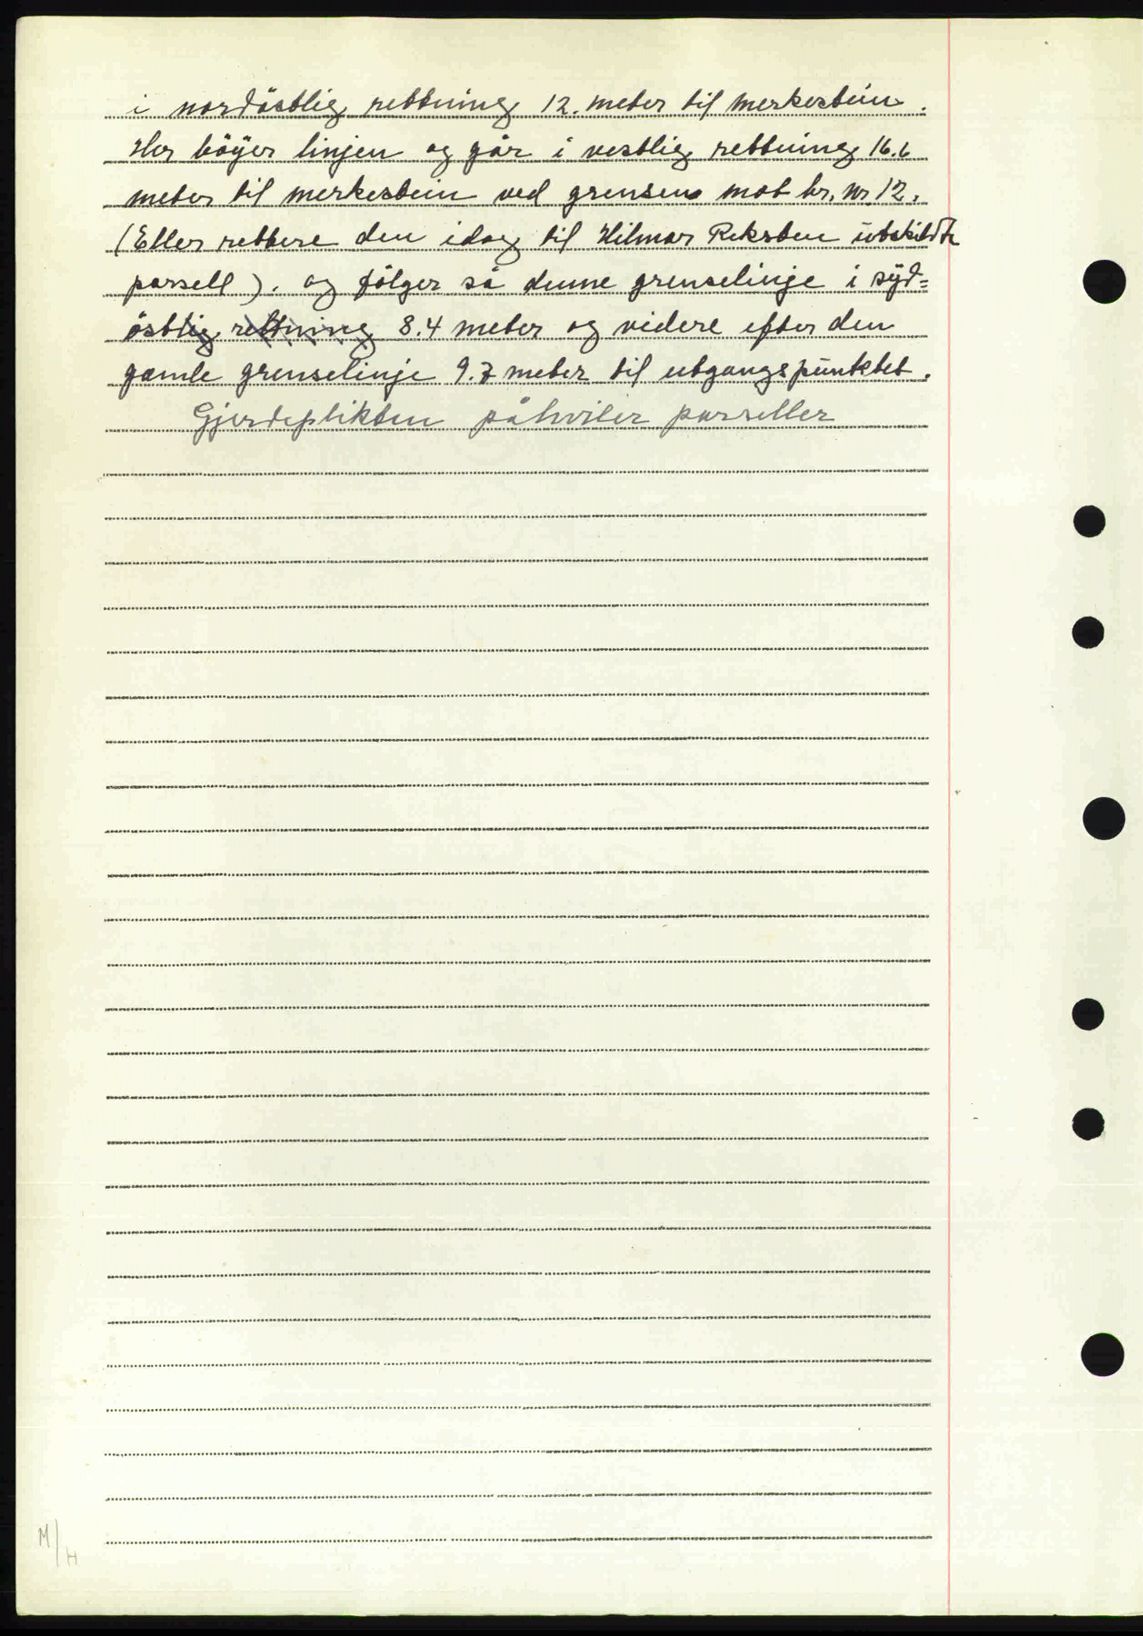 i nordöstlig rettning 12. meter til merkestein.
Her böyer linjen og går i vestlig rettning 16.6
meter til merkestein ved grensen mot br. nr 12.
(Eller rettere den idag til Hilmar Reksten utskildte
parsell). og fölger så denne grenselinje i syd=
östlig rettning 8.4 meter og videre efter den
gamle grenselinje 9.7 meter til utgangspunktet.
Gjerdeplikten påhviler parseller
M/H